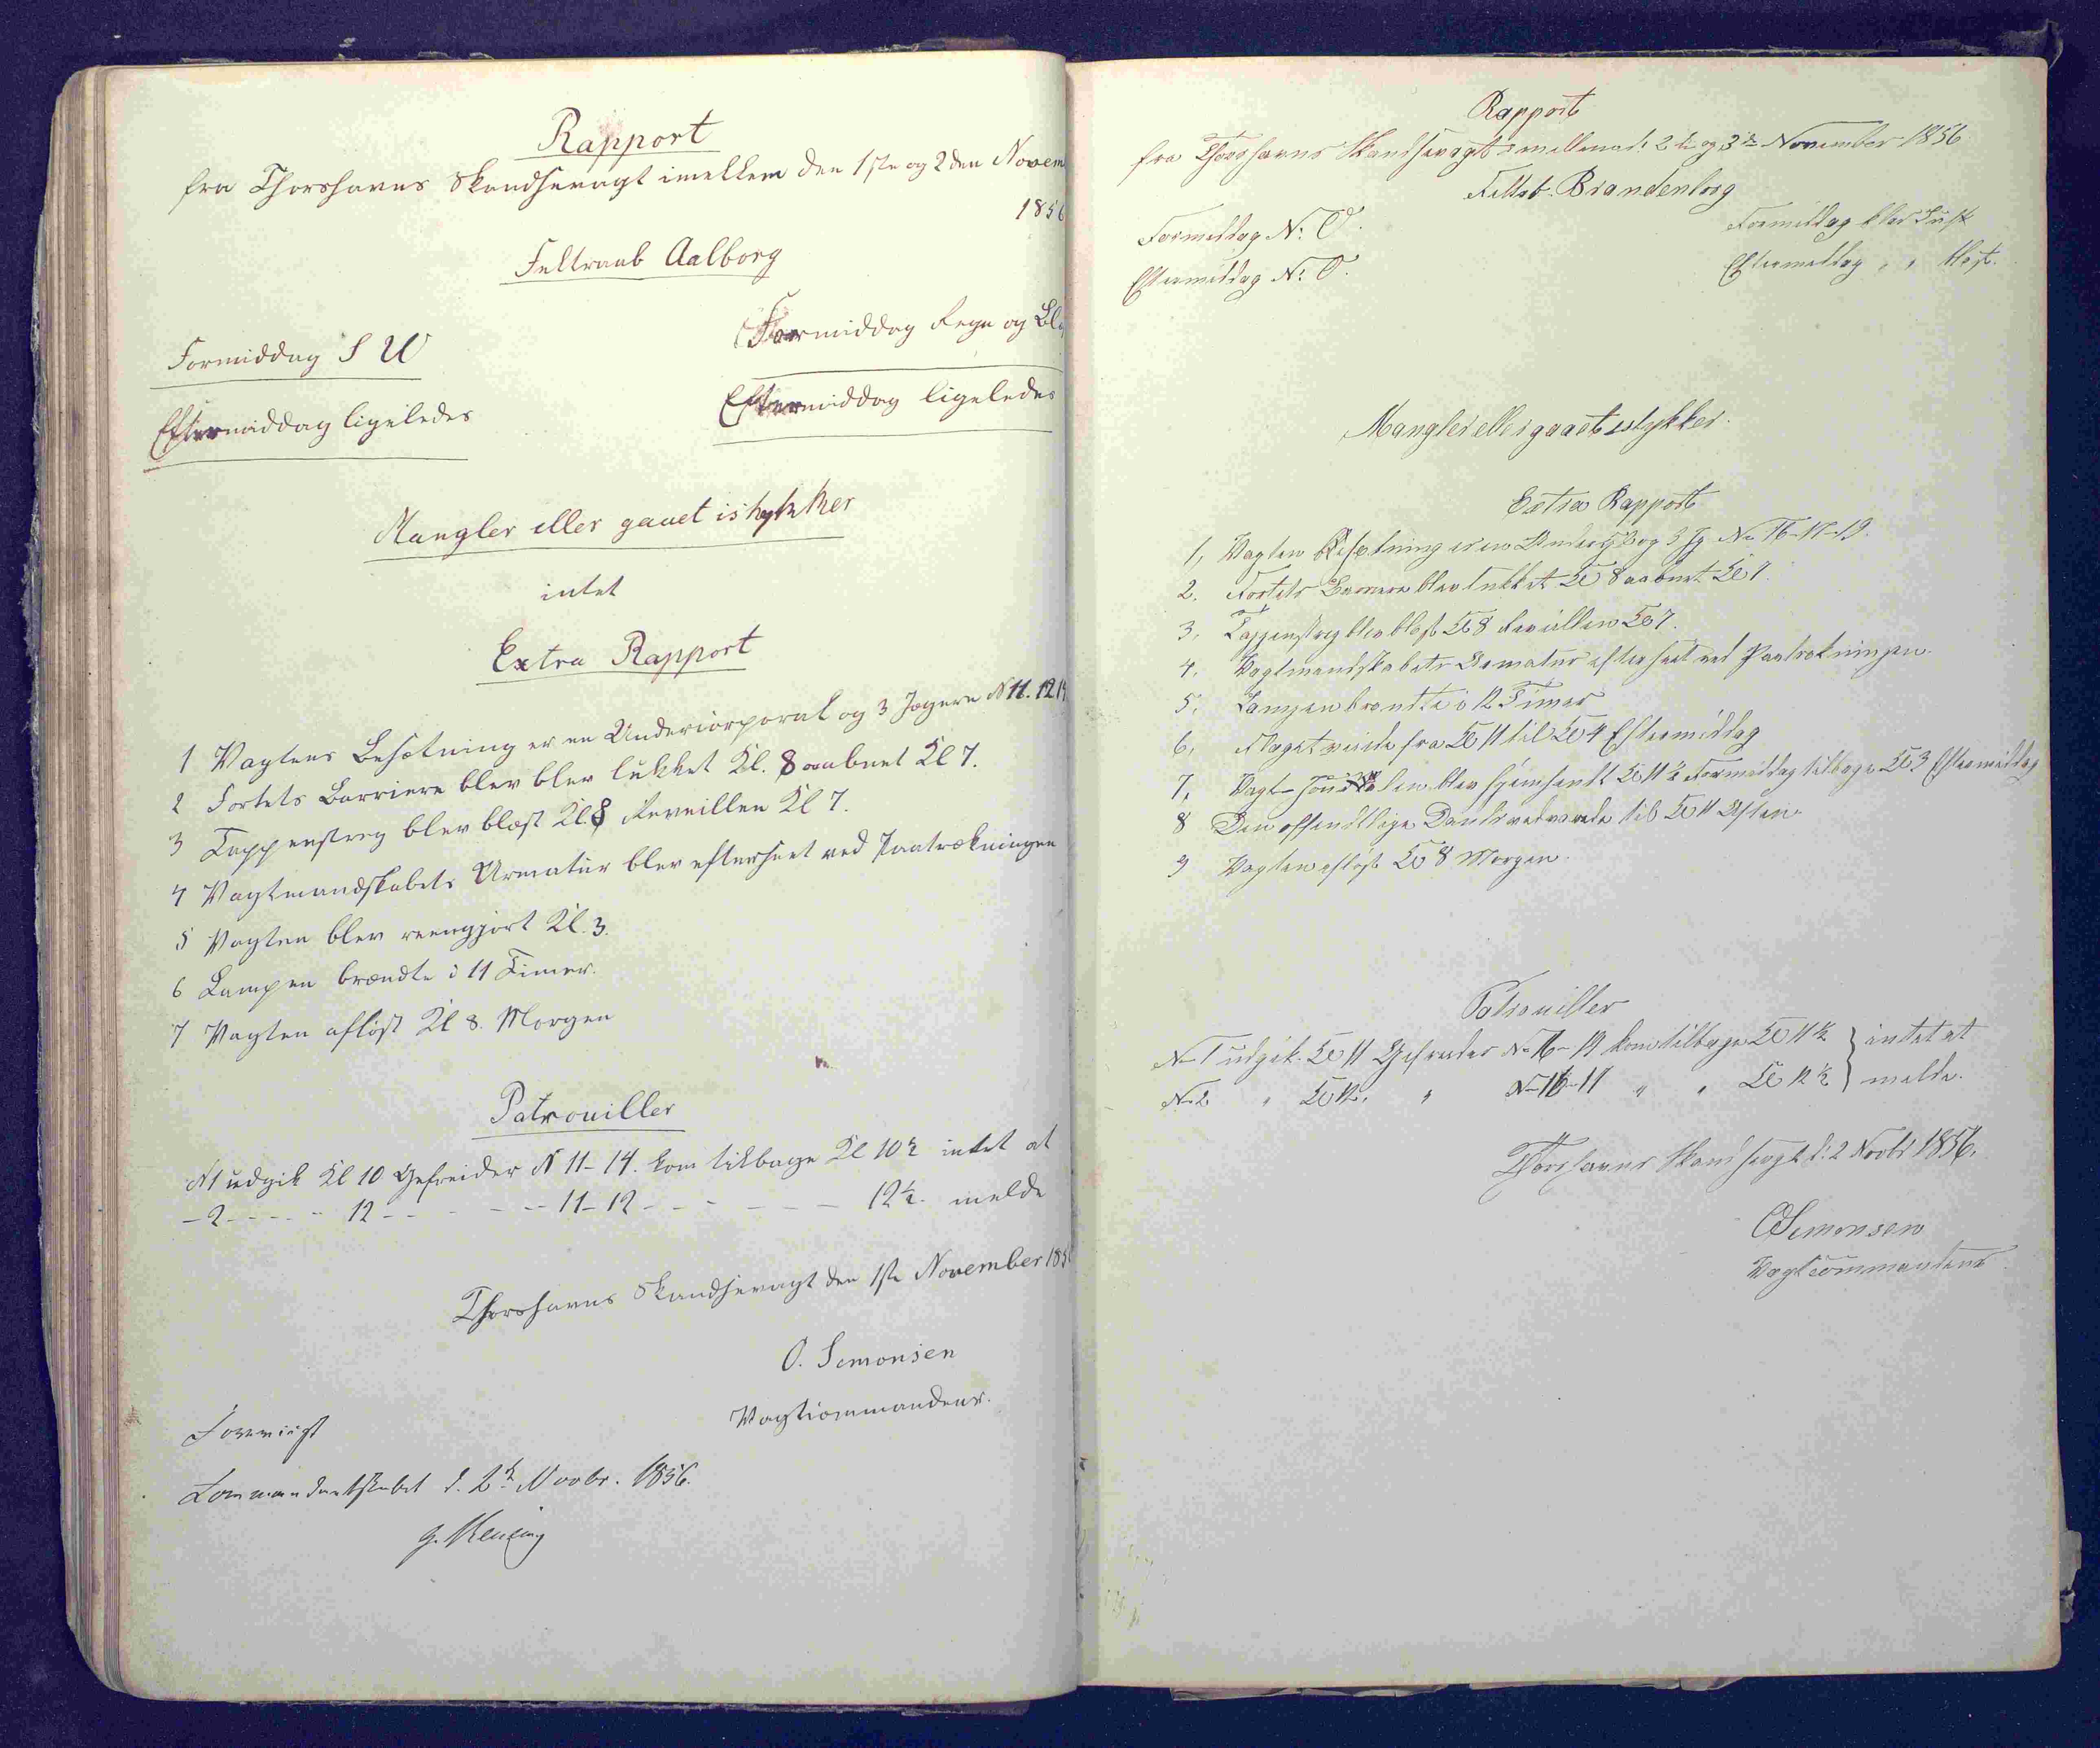 Rapport
fra Thorshavns Skandsevagt imellem den 1ste og 2den Novem
1856
Feltraab Aalborg
Formiddag S W
Formiddag Regn og Bl
Eftermiddag ligeledes
Eftermiddag ligeledes
Mangler eller gaaet istykker
intet
Extra Rapport
1 Vagtens Besætning er en Undercorporal og 3 Jægere N 11. 12 14
2 Fortets Barriere blev blev lukket Kl. 8 aabnet Kl 7.
3 Tappenstreg blev blæst Kl. 8 Reveillen Kl 7.
4 Vagtmandskabets Armatur blev efterseet ved Paatrækningen
5 Vagten blev reengjort Kl. 3.
6 Lampen brændte i 11 Timer.
7 Vagten afløst Kl 8. Morgen
Patrouiller
N 1 udgik Kl 10 Gefreider N 11-14. kom tilbage Kl 10½ intet at
- 2 - - - - - 12 - - - - - - 11-12 - - - - - - - 12½. melde
Thorshavns Skandsevagt den 1ste November 185
O. Simonsen
Vagtcommandeur.
Foreviist
Commandantskabet d. 2de Novbr. 1856.
Rapport
fra Thorshavns Skandsevagt imellem d: 2de og 3de November 1856
Feltrb. Brandenborg
Formiddag N: O.
Formiddag klar Luft
Eftermiddag N: O.
Eftermiddag " "
Mangler eller gaaet istykker.
Extra Rapport
1, Vagten Besætning er en Undercp og 3 Jg No 16-17-19.
2. Fortets Barriere blev lukket Kl 8 aabnet Kl 7.
3, Tappenstreg blev blæst Kl 8 Reveillen Kl 7.
4, Vagtmandskabets Armatur efterseet ved Paatrækningen.
5, Lampen brændte i 12 Timer
6, Flaget veiede fra Kl 11 til Kl 4 Eftermiddag
7, Vagt-Jour len blev hjemsendt Kl 11½ Formiddag tilbage Kl 3 Eftermiddag
8 Den offendtlige Dands vedvarede til Kl 11 Aften.
9 Vagten afløst Kl 8 Morgen.
Patrouiller
No 1 udgik. Kl 11 Gefreider No 16-19 kom tilbage Kl 11½ } intet at
No 2 " Kl 12, " No 16-17 " " Kl 12½ } melde.
Thorshavns Skandsevagt d: 2 Novbr 1856.
O Simonsen
Vagtcommandeur